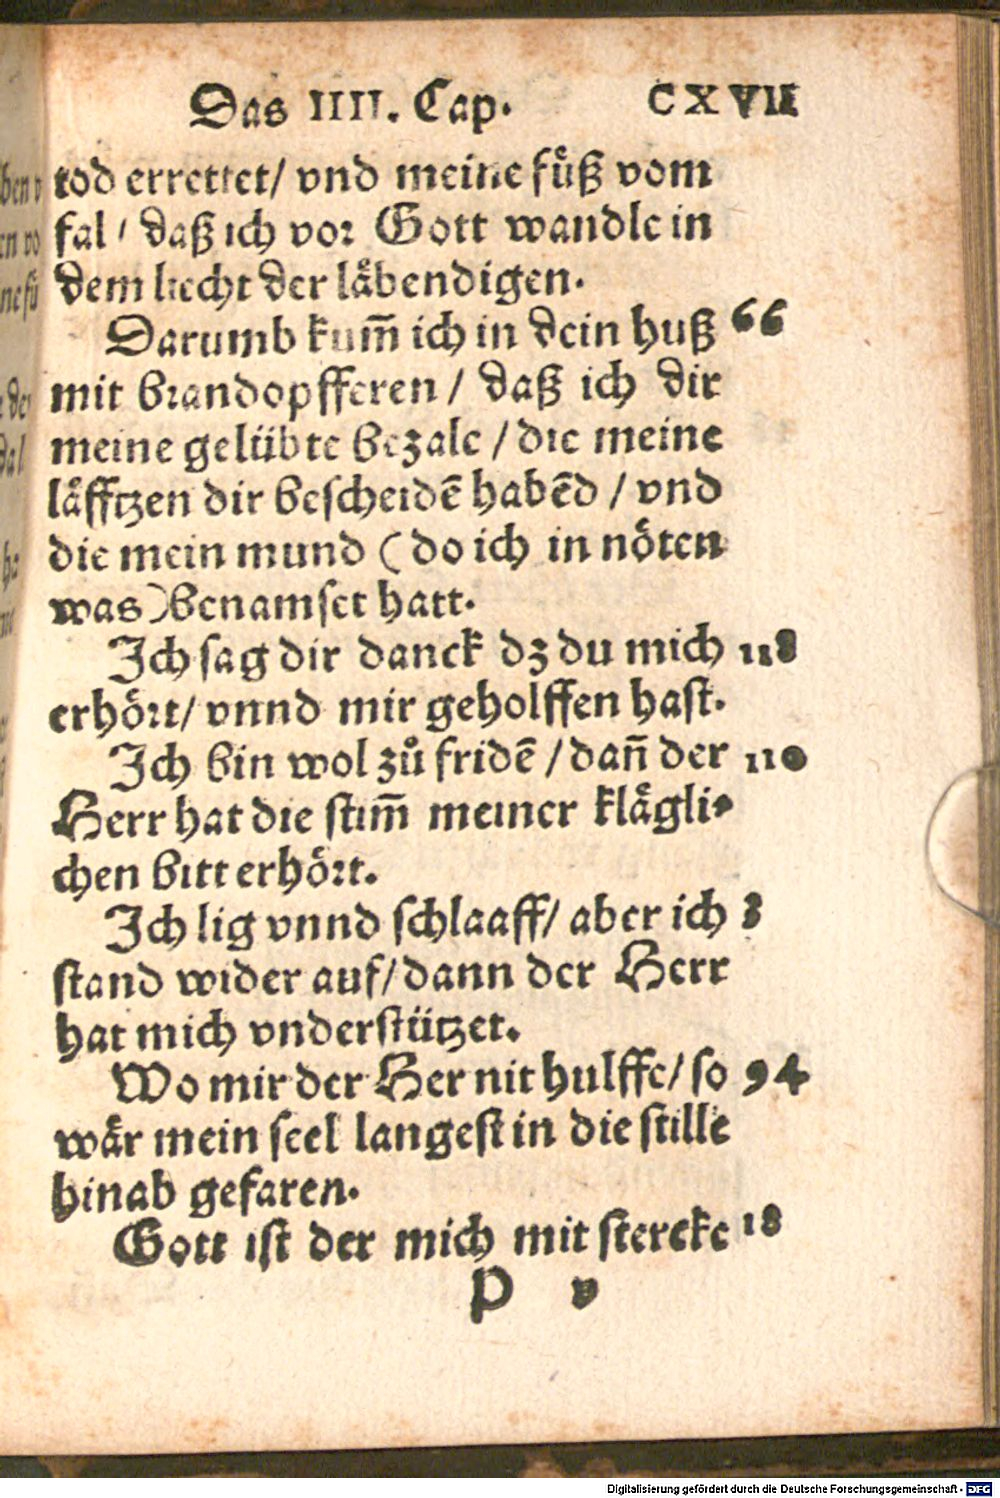 Das IIII. Cap. CXVII
tod errettet/ vnd meine fuͤß vom
fal / daß ich vor Gott wandle in
dem liecht der laͤbendigen.
Darumb kum̄ ich in dein huß 66
mit brandopfferen / daß ich dir
meine geluͤbte bezale / die meine
laͤfftzen dir bescheidē habēd / vnd
die mein mund (do ich in noͤten
was) benamset hatt.
Ich sag dir danck dz du mich 118
erhoͤrt/ vnnd mir geholffen hast.
Ich bin wol zů fridē / dan̄ der 110
Herr hat die stim̄ meiner klaͤgli-
chen bitt erhoͤrt.
Ich lig vnnd schlaaff/ aber ich 3
stand wider auf/ dann der Herr
hat mich vnderstuͤtzet.
Wo mir der Her nit hulffe/ so 94
waͤr mein seel langest in die stille
hinab gefaren.
Gott ist der mich mit stercke 18
P v
Digitalisierung gefördert durch die Deutsche Forschungsgemeinschaft - DFG